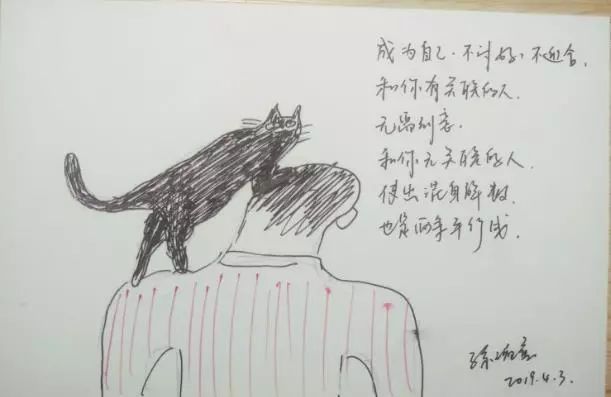 成为自己.不讨好,不迎合.
和你有关联的人.
无需刻意.
和你无关联的人.
使出浑身解数.
也是两条平行线.
2019.4.3.